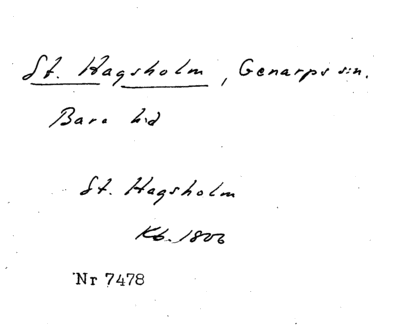 St. Hagsholm, Genarps sn.
Bara hd
St. Hagsholm
Kb. 1806
Nr 7478